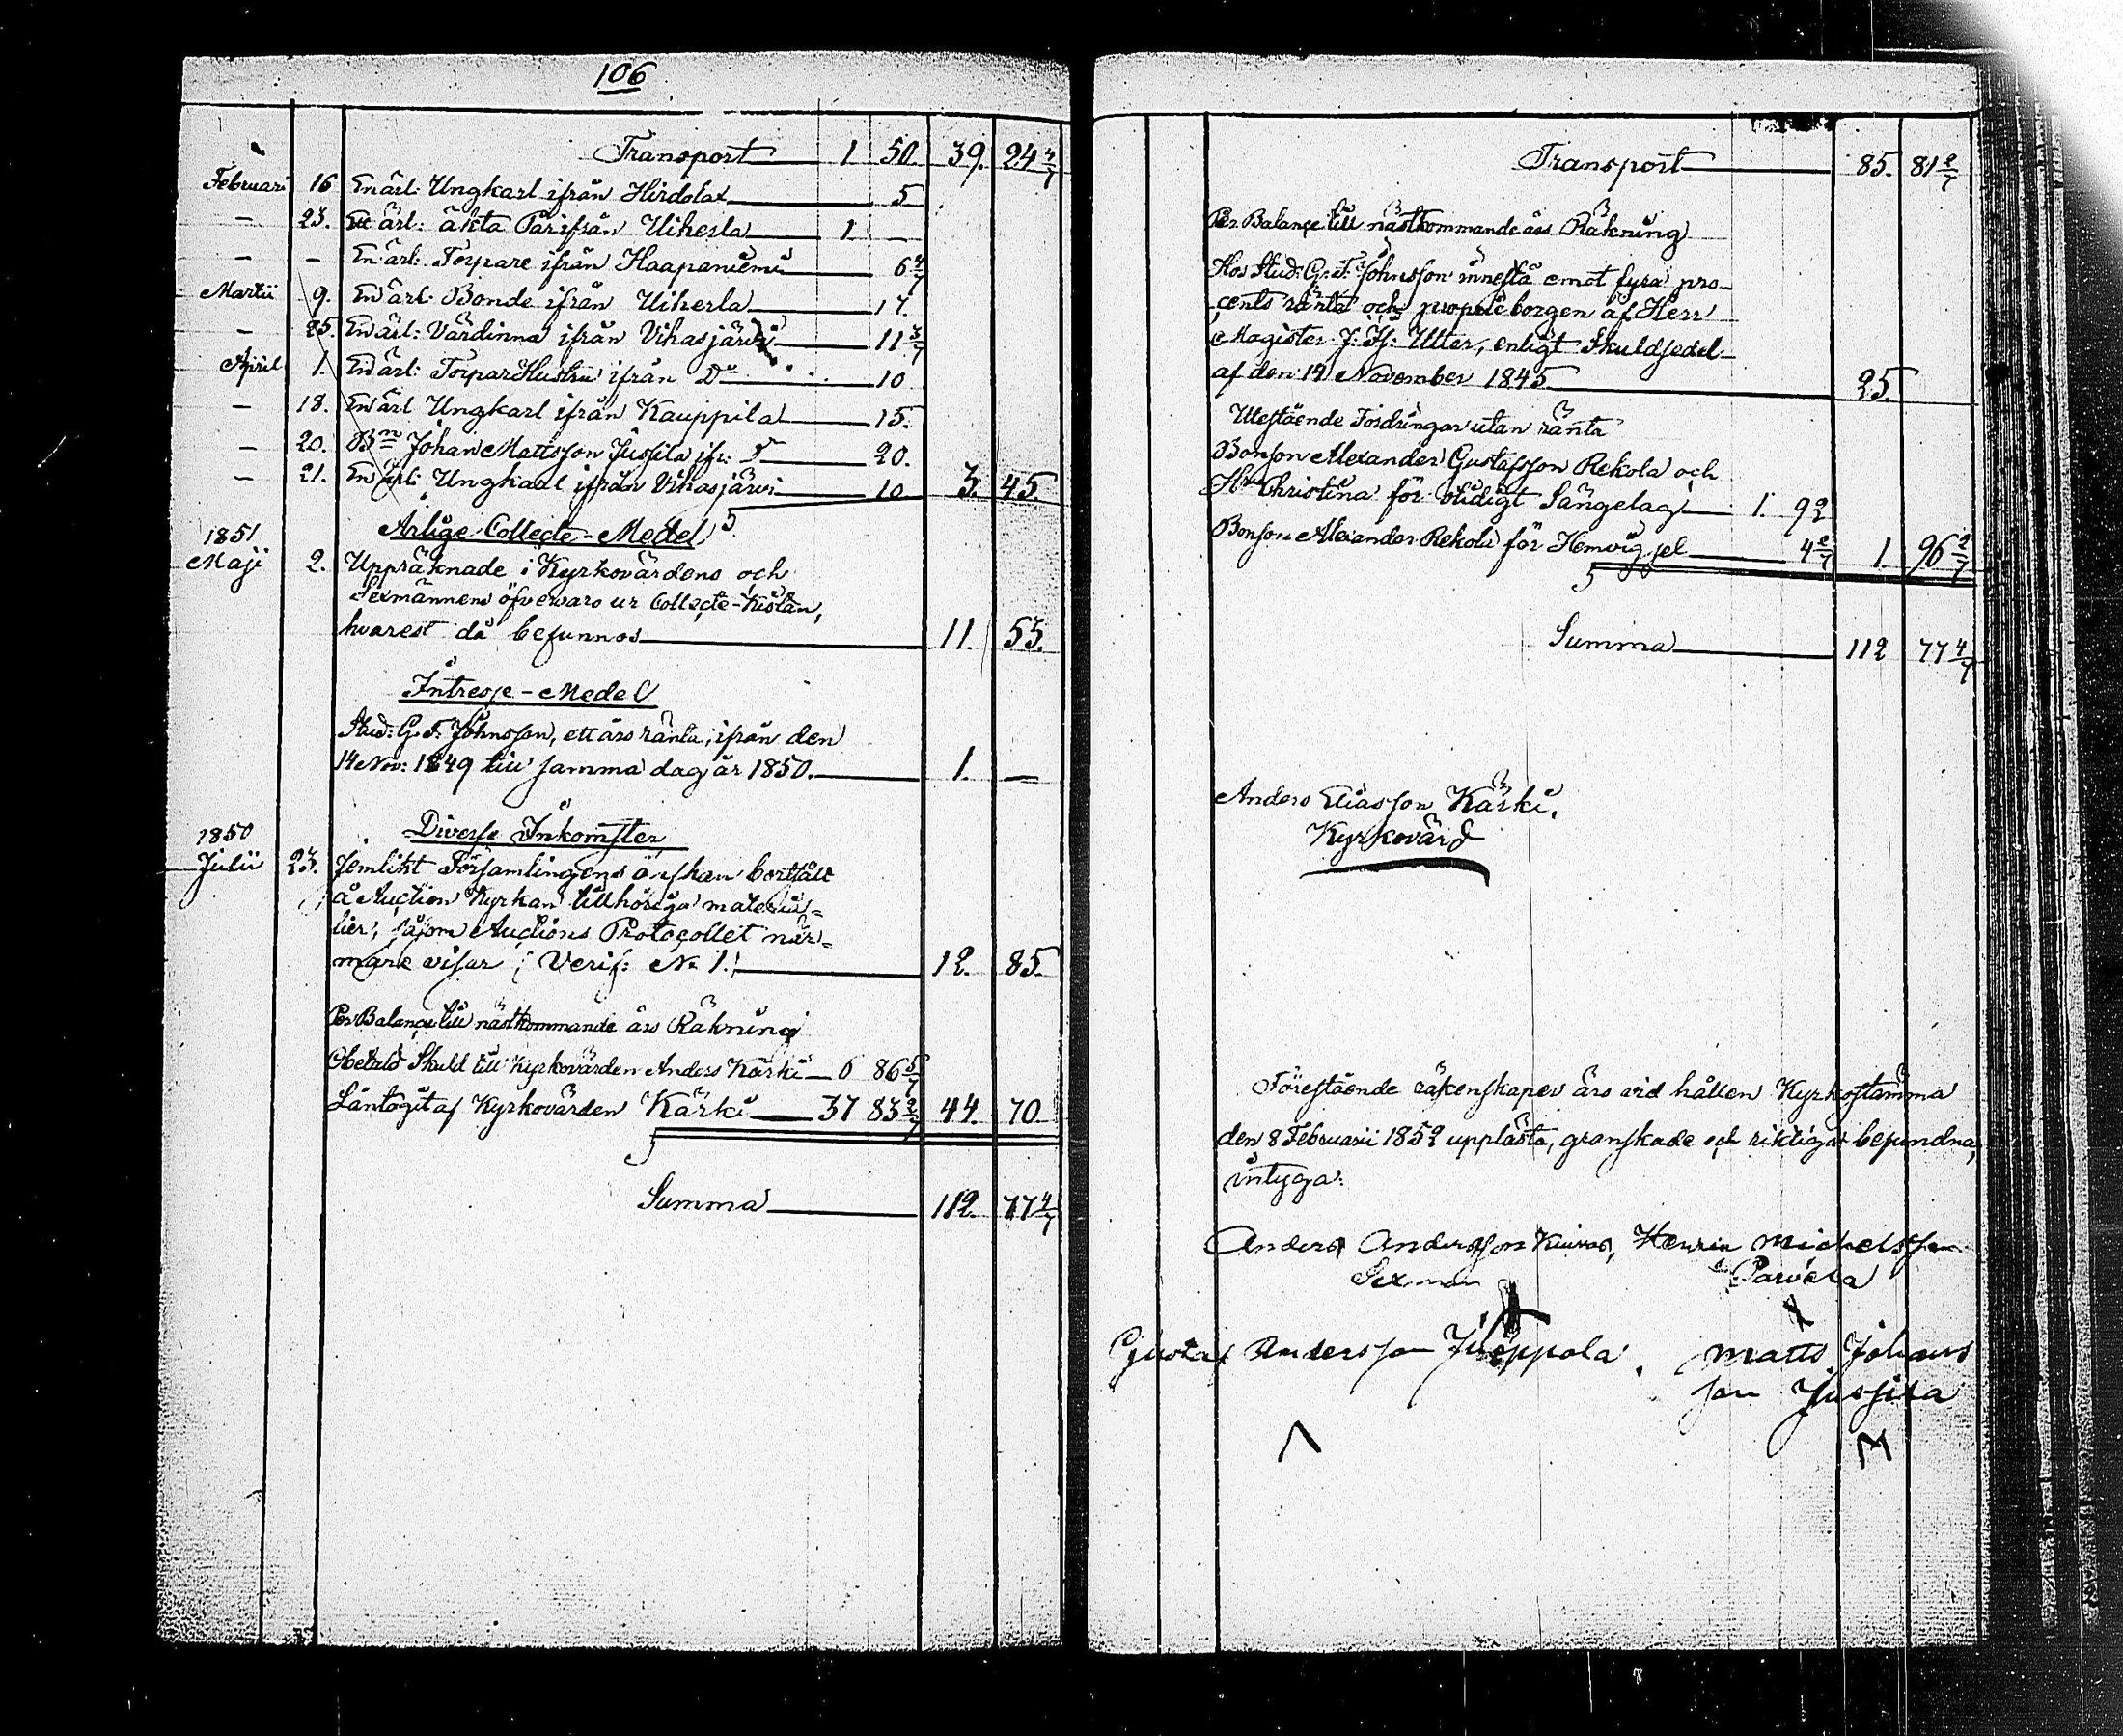 106
Transport 1 50. 39. 24 4/7
Februari 16 En ärl: Ungkarl ifrån Hirdolax 5
— 23. Ett ärl: äkta Par ifrån Uiherla 1. —
— — En ärl: Torpare ifrån Haapaniemi 6 4/7
Martii 9. En ärl: Bonde ifrån Uiherla 17.
— 25. En ärl: Värdinna ifrån Vihasjärvi 11 3/7
April 1. En ärl: Torpar Hustru ifrån Do 10
— 18. En ärl Ungkarl ifrån Kauppila 15.
— 20. Bn Johan Mattsson Jussila ifr: 20.
— 21. En ärl: Ungkarl ifrån Vihasjärvi 10 3. 45.
Årlige Collecte-Medel
1851
Maji 2. Uppräknade i Kyrkovärdens och
Sexmännens öfvervaro ur Collecte-Kistan,
hvarest då befunnos 11. 53.
Intresse-Medel
Stud: G. F. Johnsson, ett års ränta, ifrån den
14 Nov: 1849 till samma dag år 1850. 1. —
Diverse Inkomster
1850
Julii 23. Jemlikt Församlingens önskan bortsålt
å Auction Kyrkan tillhöriga materia-
lier, såsom Auctions Protocollet när-
mare visar; Verif: No 1. 12. 85.
Per Balance till nästkommande års Räkning
Obetald Skuld till Kyrkovärden Anders Kärki 6 86 5/7
Låntagit af Kyrkovärden Kärki 37 83 2/7 44. 70.
Summa 112. 77 4/7
Transport 85. 81 2/7
Per Balance till nästkommande års Räkning
Hos Stud: G. F. Johnsson innestå emot fyra pro-
cents ränta och proprie borgen af Herr
Magister J. Hj. Utter, enligt Skuldsedel
af den 14 November 1845 25.
Utestående Fordringar utan ränta
Bonson Alexander Gustafsson Rekola och
Hu Christina för otidigt Sängelag 1. 92
Bonson Alexander Rekola för Hemvig sel 4 2/7 1. 96 2/7
Summa 112 77 4/7
Anders Eliasson Kärki.
Kyrkovärd
Förestående räkenskaper äro vid hållen Kyrkostämma
den 8 Februarii 1852 upplästa, granskade och riktiga befundna,
intyga:
Anders Andersson Henrik Michelsson
Sexman Parvela
Gustaf Andersson Juoppola. Matts Johans
son Jussila